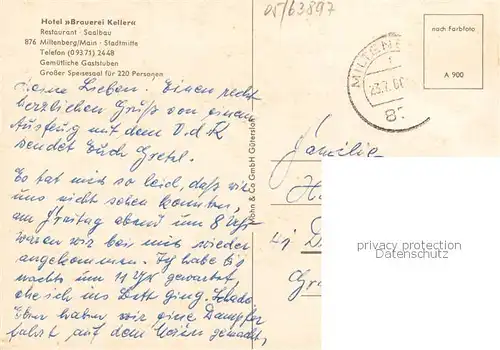 05/63897
Hotel »Brauerei Keller«
Restaurant · Saalbau
876 Miltenberg/Main · Stadtmitte
Telefon (0 93 71) 24 48
Gemütliche Gaststuben
Großer Speisesaal für 220 Personen
nach Farbfoto
A 900
MILTENBE
23.7.
87
Meine Lieben. Einen recht
herzlichen Gruß von einem
Ausflug mit dem V.d.K
sendet Euch Gretel.
Es tat mir so leid, daß wir
uns nicht sehen konnten,
am Freitag abend um 8 Uhr
waren wir bei mir wieder
angekommen. Ich habe bis
nachts um 11 Uhr gewartet
ehe ich ins Bett ging. Schade
Eben haben wir eine Dampfer
fahrt auf dem Main gemacht,
Mohn & Co GmbH Gütersloh
Familie
H
41 D
Gr
privacy protection
AnsichtskartenVersand.com